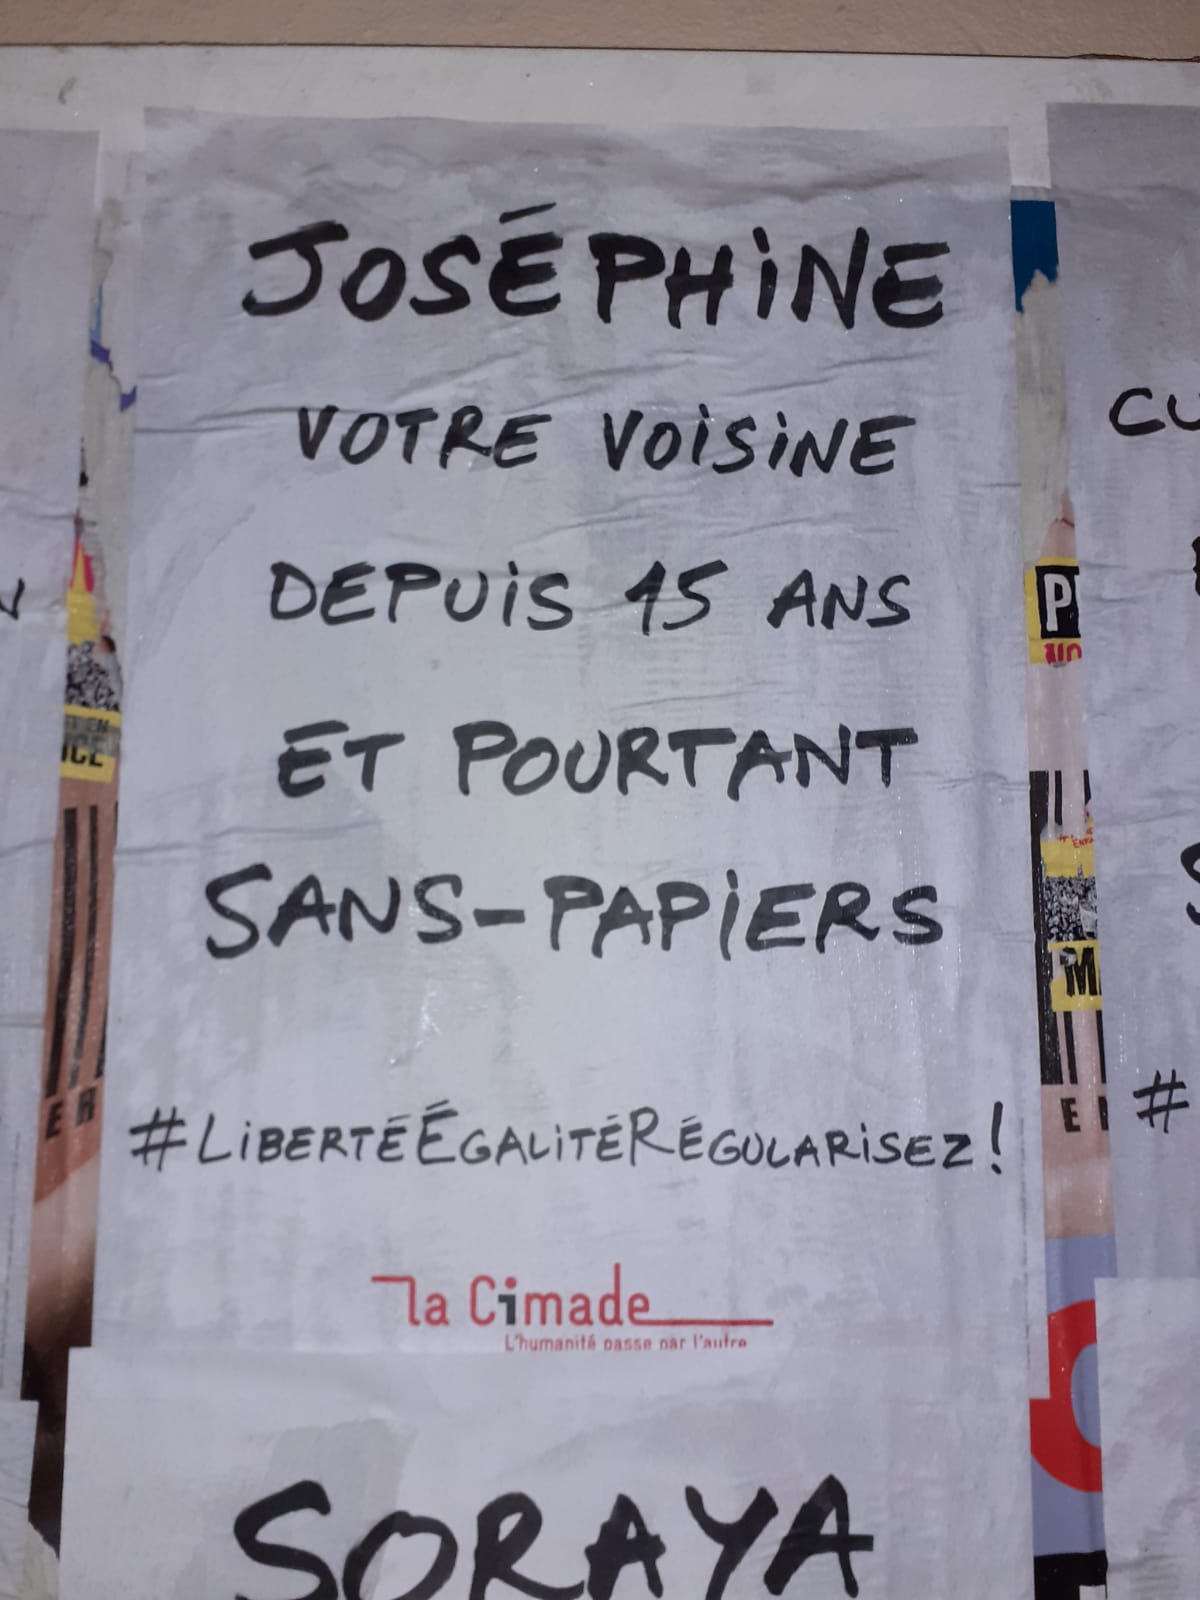 JOSÉPHINE
VOTRE VOISINE
DEPUIS 15 ANS
ET POURTANT
SANS-PAPIERS
#LIBERTÉÉGALITÉRÉGULARISEZ!
la Cimade
L'humanité passe par l'autre
SORAYA